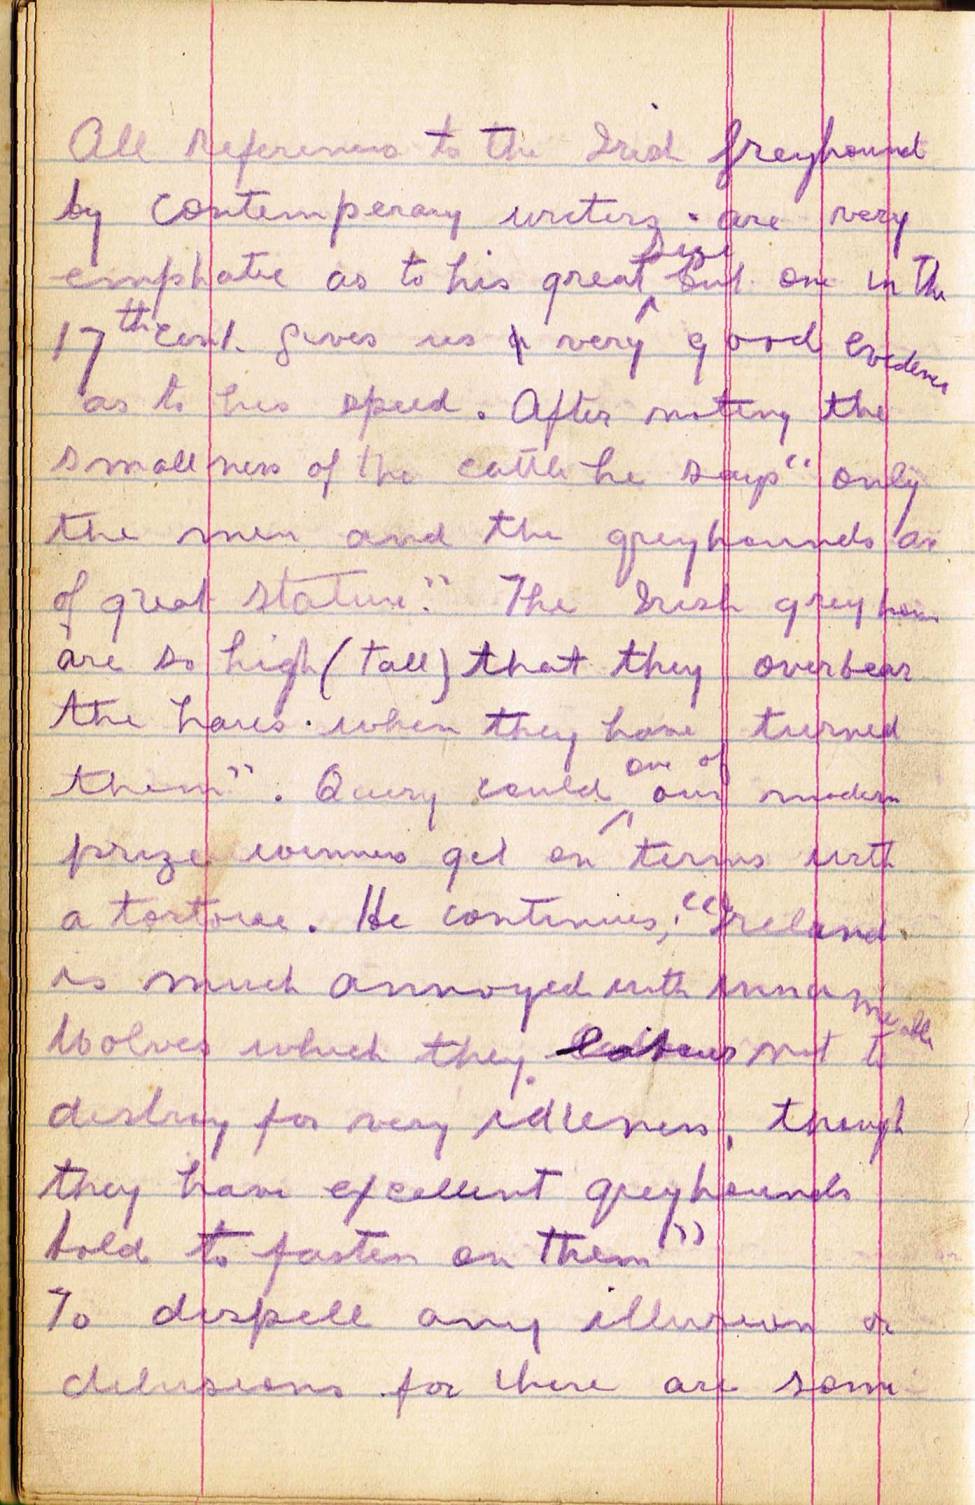 All references to the Irish greyhound
by contemperary writers are very
emphatic as to his great size but one in the
17th cent. gives us a very good evidence
as to his speed. After noting the
smallness of the cattle he says "only
the men and the greyhounds are
of great stature." The Irish greyhouns
are so high (tall) that they overbear
the hares. when they have turned
them". Query could one of our modern
prize winners get on terms with
a tortoise. He continues, "Ireland
is much annoyed with innumerable
Wolves which they labour not to
destroy for very idleness, though
they have excellent greyhounds
bold to fasten on them"
To dispell any illusion or
delusions for there are some